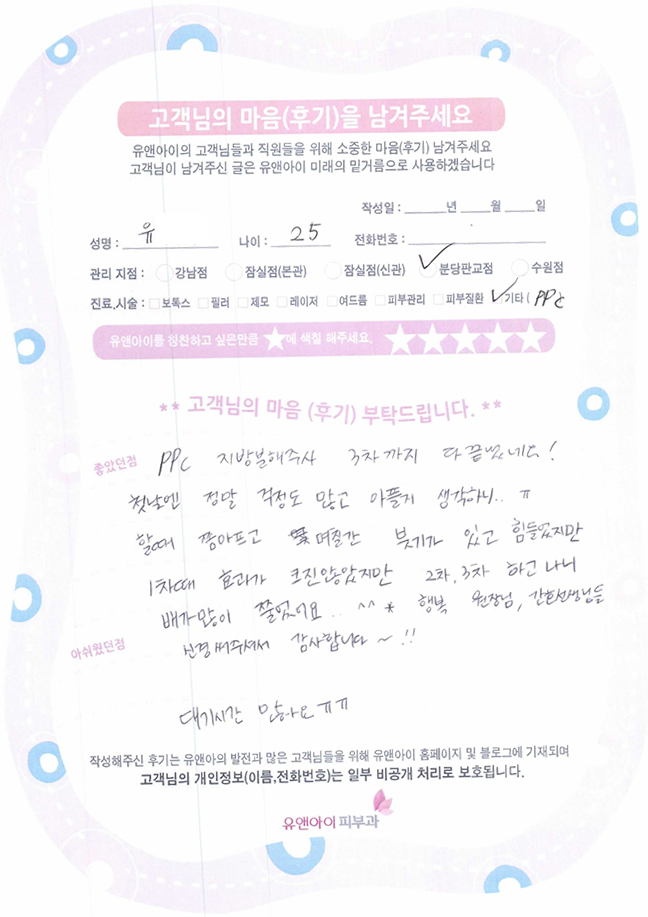 고객님의 마음(후기)을 남겨주세요
유앤아이의 고객님들과 직원들을 위해 소중한 마음(후기) 남겨주세요
고객님이 남겨주신 글은 유앤아이 미래의 밑거름으로 사용하겠습니다
작성일 : ______년 ____월 ____일
성명 : 유 나이 : 25 전화번호 :
관리 지점 : 강남점 잠실점(본관) 잠실점(신관) ✓분당판교점 수원점
진료,시술 : □보톡스 □필러 □제모 □레이저 □여드름 □피부관리 □피부질환 ✓기타( PPC
유앤아이를 칭찬하고 싶은만큼 ★에 색칠 해주세요. ★★★★★
** 고객님의 마음 (후기) 부탁드립니다. **
좋았던점 PPC 지방분해주사 3차까지 다 끝났네요!
첫날엔 정말 걱정도 많고 아플지 생각하니.. ㅠ
할때 쫌아프고 몇일간 붓기가 있고 힘들었지만
1차때 효과가 크진않았지만 2차, 3차 하고 나니
배가많이 줄었어요.. ^^ * 행복 원장님, 간호선생님들
아쉬웠던점 신경써주셔서 감사합니다 ~ !!
대기시간 많아요ㅠㅠ
작성해주신 후기는 유앤아의 발전과 많은 고객님들을 위해 유앤아이 홈페이지 및 블로그에 기재되며
고객님의 개인정보(이름,전화번호)는 일부 비공개 처리로 보호됩니다.
유앤아이피부과